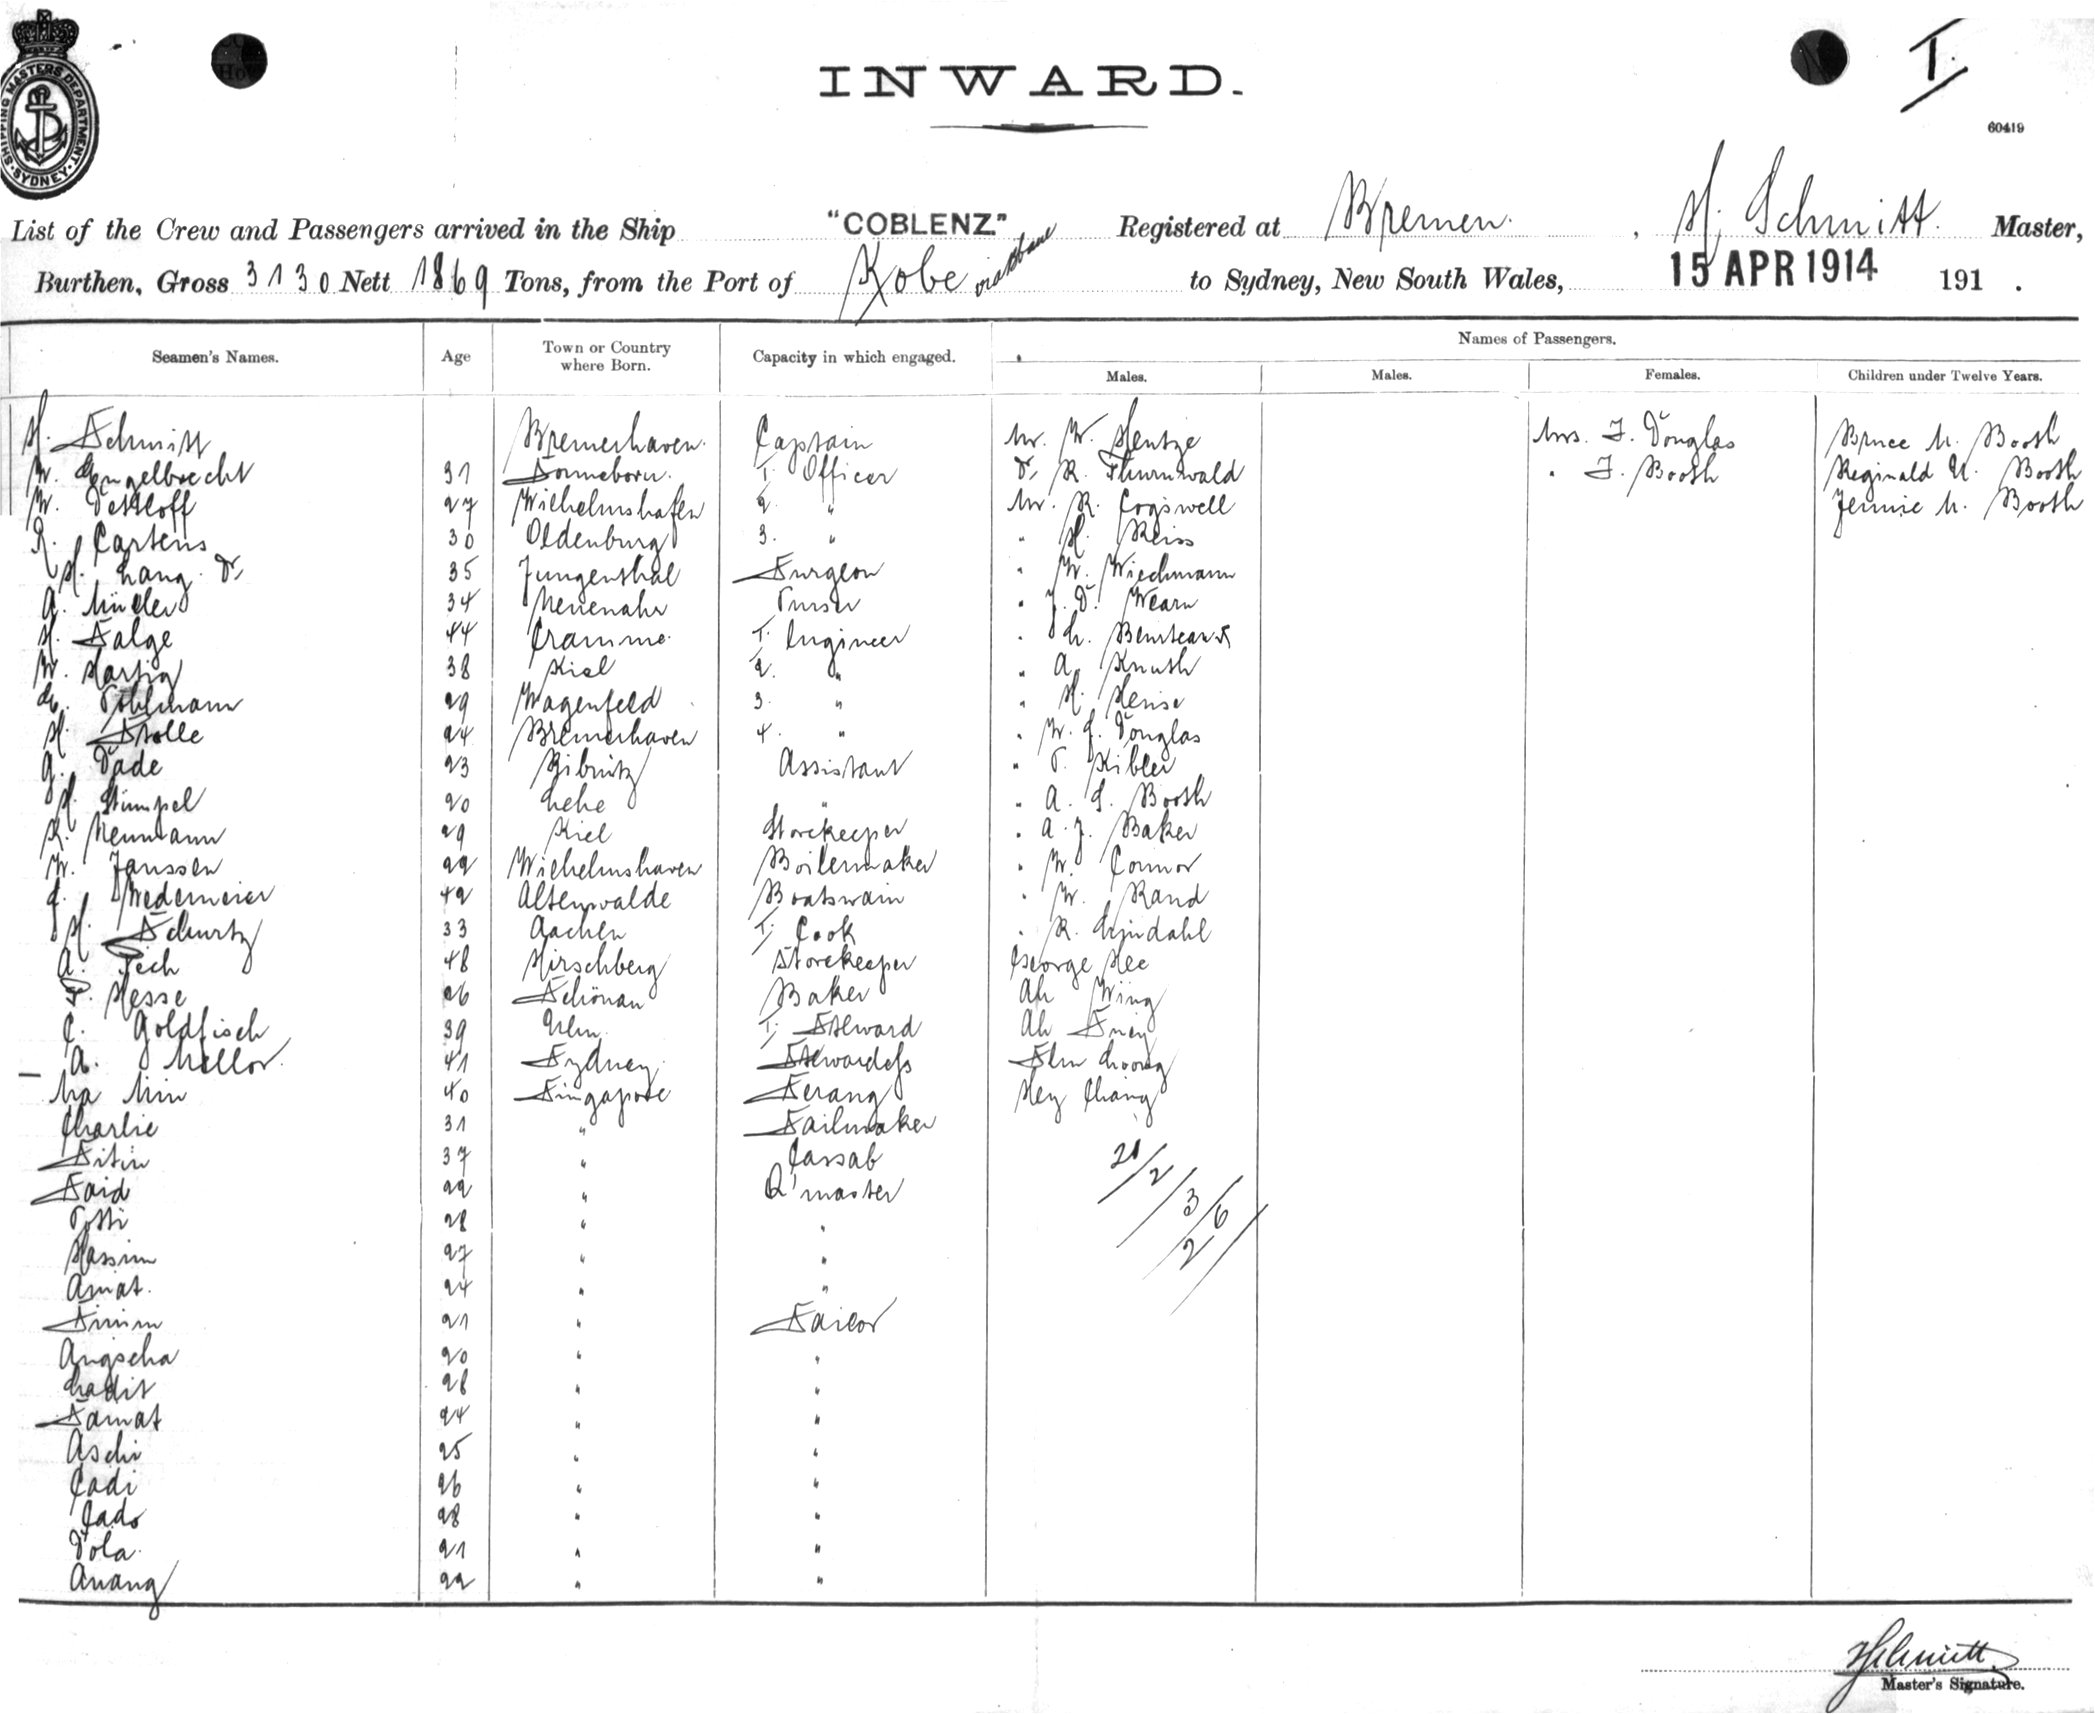 INWARD.
I.
60419
SHIPPING MASTERS DEPARTMENT
SYDNEY
List of the Crew and Passengers arrived in the Ship "COBLENZ" Registered at Bremen. , H. Schmitt. Master,
Burthen, Gross 3130 Nett 1869 Tons, from the Port of Kobe via to Sydney, New South Wales, 15 APR 1914 191 .
Names of Passengers.
Seamen's Names. Age Town or Country where Born. Capacity in which engaged. Males. Males. Females. Children under Twelve Years.
H. Schmitt Bremerhaven. Captain Mr. W. Hentze Mrs. F. Douglas Bruce M. Booth
W. Engelbrecht 31 Sonneborn. I. Officer Dr. R. Thurnwald " F. Booth Reginald U. Booth
W. Dettloff 27 Wilhelmshafen 2. " Mr. R. Cogswell Jennie M. Booth
R. Carstens 30 Oldenburg 3. " " H. Reiss
H. Lang. Dr. 35 Jungenthal Surgeon " W. Wiechmann
A. Müller 34 Neuenahr Purser " J. D. Wearn
H. Salge 44 Cramme. I. Engineer " L.
W. Hartig 38 Kiel 2. " " A. Knuth
E. Pohlmann 29 Wagenfeld 3. " " H. Heise
H. Stolle 24 Bremerhaven 4. " " W. S. Douglas
G. Dade 23 Ribnitz Assistant " P. Kibler
H. Stümpel 20 Lehe " " A. S. Booth
K. Neumann 29 Kiel Storekeeper " A. J. Baker
W. Janssen 22 Wilhelmshaven Boilermaker " W. Connor
J. Wedemeier 42 Altenwalde Boatswain " W. Rand
H. Schurtz 33 Aachen I. Cook " R. Lyndahl
A. Pech 48 Hirschberg Storekeeper George Hee
F. Hesse 26 Schönau Baker Ah Wing
C. Goldfisch 39 Ulm. I. Steward Ah Suey
A. Mellor. 41 Sydney Stewardess Sem Choong
Ma Min 40 Singapore Serang Hey Chang
Charlie 31 " Sailmaker
Sitin 37 " Cassab
Said 22 " Q'master
Potti 28 " "
Hassim 27 " "
Amat. 24 " "
Simin 21 " Sailor
Angscha 20 " "
Ladit 28 " "
Samat 24 " "
Aschi 25 " "
Cadi 26 " "
Cado 28 " "
Dola. 21 " "
Anang 22 " "
21/2/3/26/
HSchmitt.
Master's Signature.